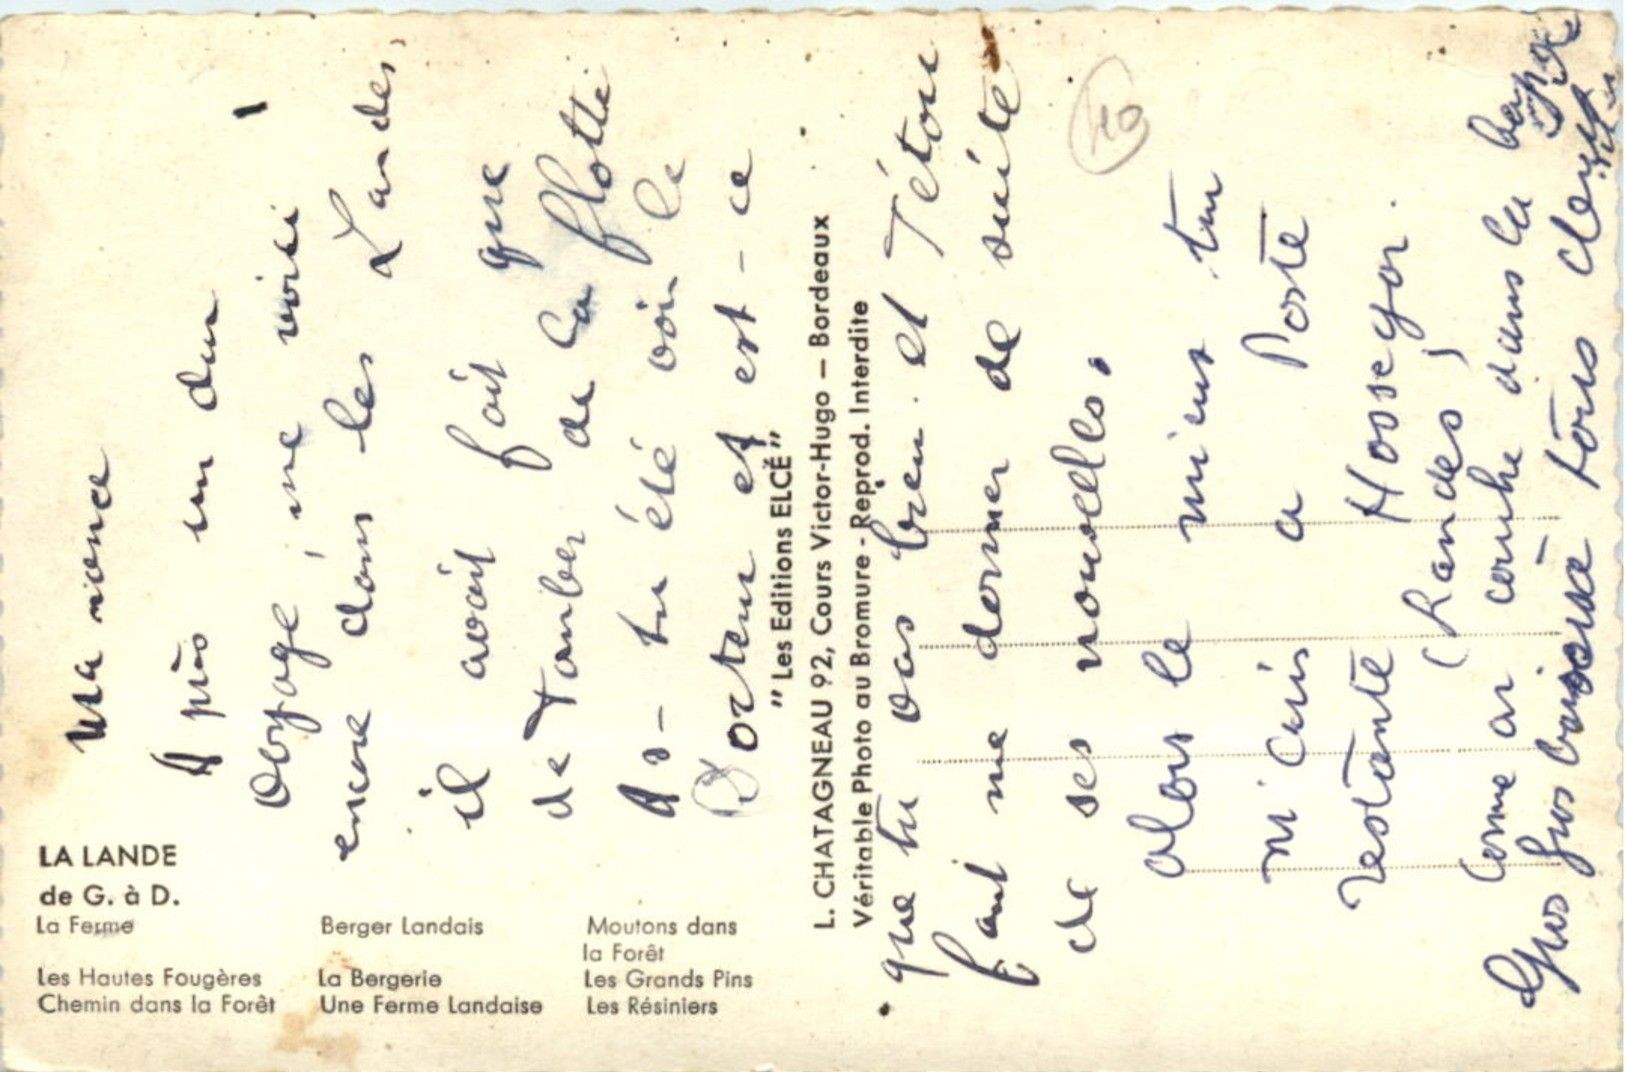 LA LANDE
de G. à D.
La Ferme Berger Landais Moutons dans
la Forêt
Les Hautes Fougères La Bergerie Les Grands Pins
Chemin dans la Forêt Une Ferme Landaise Les Résiniers
" Les Editions ELCÉ "
L. CHATAGNEAU 92, Cours Victor-Hugo — Bordeaux
Véritable Photo au Bromure - Reprod. Interdite
Ma
Apris un dur
voyage, me voici
encore dans les Landes,
il avait fait que
de tomber de la flotte
As-tu été voir le
Docteur et est-ce
que tu vas bien. et Téton
faut me donner de suite
de ses nouvelles.
alors le mieux tu
m'écris a Poste
restante Hossegor.
(Landes)
Comme on couche dans la
Gros Gros tous deux